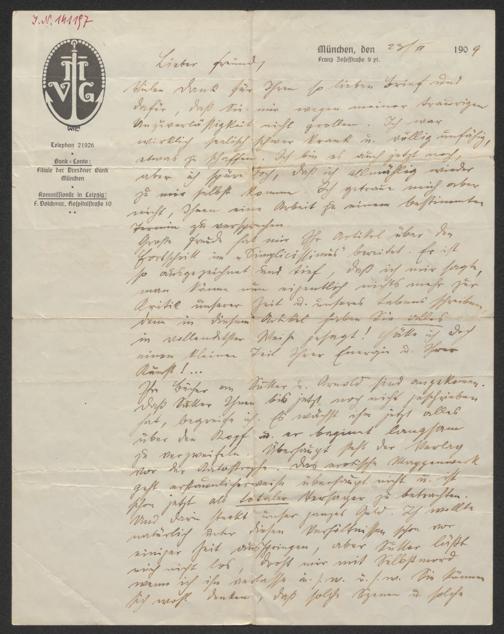 J.N. 141197
M V G
München, den 23/II 1909
Franz Josefstraße 9 pt.
Telephon 21926
Bank-Conto:
Filiale der Dresdner Bank
München
Kommissionär in Leipzig:
F. Volckmar, Hospitalstraße 10
Lieber Freund,
Vielen Dank für Ihren so lieben Brief und
dafür, daß Sie mir wegen meiner traurigen
Unzuverlässigkeit nicht grollen. Ich war
wirklich seelisch schwer krank u. völlig unfähig,
etwas zu schaffen. Ich bin es auch jetzt noch,
aber ich spüre doch, daß ich allmählig wieder
zu mir selbst komme. Ich getraue mich aber
nicht, Ihnen eine Arbeit zu einem bestimmten
Termin zu versprechen.
Große Freude hat mir Ihr Artikel über den
Fortschritt im "Simplicissimus" bereitet. Er ist
so ausgezeichnet und tief, daß ich mir sagte,
man könne nun eigentlich nichts mehr zur
Kritik unserer Zeit u. unseres Lebens schreiben,
denn in diesem Artikel haben Sie alles
in vollendetster Weise gesagt! Hätte ich doch
einen kleinen Teil Ihrer Energie u. Ihrer
Kunst!...
Ihre Bücher an Sutter u. Arnold sind angekommen.
Daß Sutter Ihnen bis jetzt noch nicht geschrieben
hat, begreife ich. Es wächst ihm jetzt alles
über den Kopf u. er beginnt langsam
zu verzweifeln. Überhaupt steht der Verlag
vor der Katastrophe. Das erotische Mappenwerk
geht erstaunlicherweise überhaupt nicht u. ist
schon jetzt als totaler Versager zu betrachten.
Und darin steckt unser ganzes Geld. Ich wollte
natürlich unter diesen Verhältnissen schon vor
einiger Zeit ausspringen, aber Sutter läßt
mich nicht los, droht mir mit Selbstmord
wenn ich ihn verlasse u.s.w. u.s.w. Sie können
sich wohl denken, daß solche Szenen u. solche